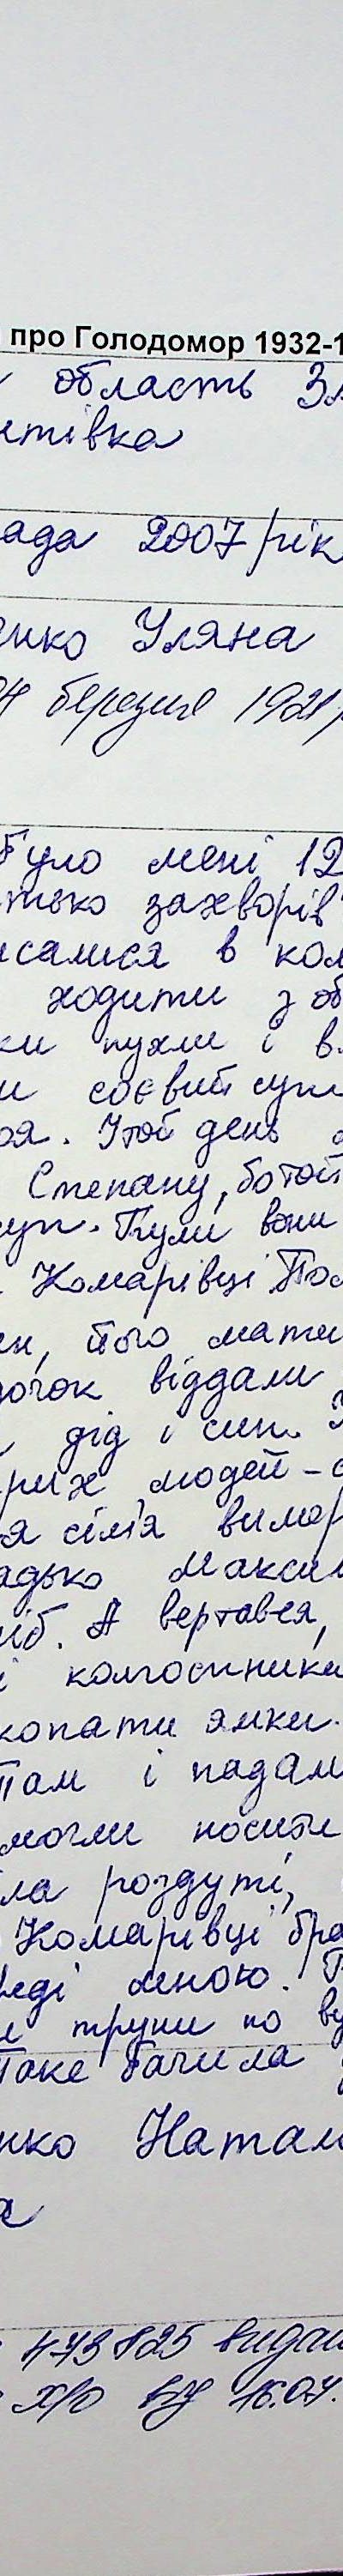 про Голодомор 1932-1
область Зл
итівка
ада 2007 рік
енко Уляна
березня 1921 р
було мені 12
тько захворів
исалися в кол
ходити з об
ки пухли і в
и соєвий суп
ря. Утой день
Степану, ботой
суп. Були вони
Комарівці. Пол
ен, його мати
дочок віддали
дід і син. У
рих людей – с
я сім'я вимер
адько Макси
іб. А вертався,
і колгоспники
копати ямки.
там і падал
могли носити
ла роздуті,
Комарівці бра
реді мною. Т
и трупи по ву
Таке бачила
нко Натал
а
473825 видан
ХЮ ВУ 16.04.